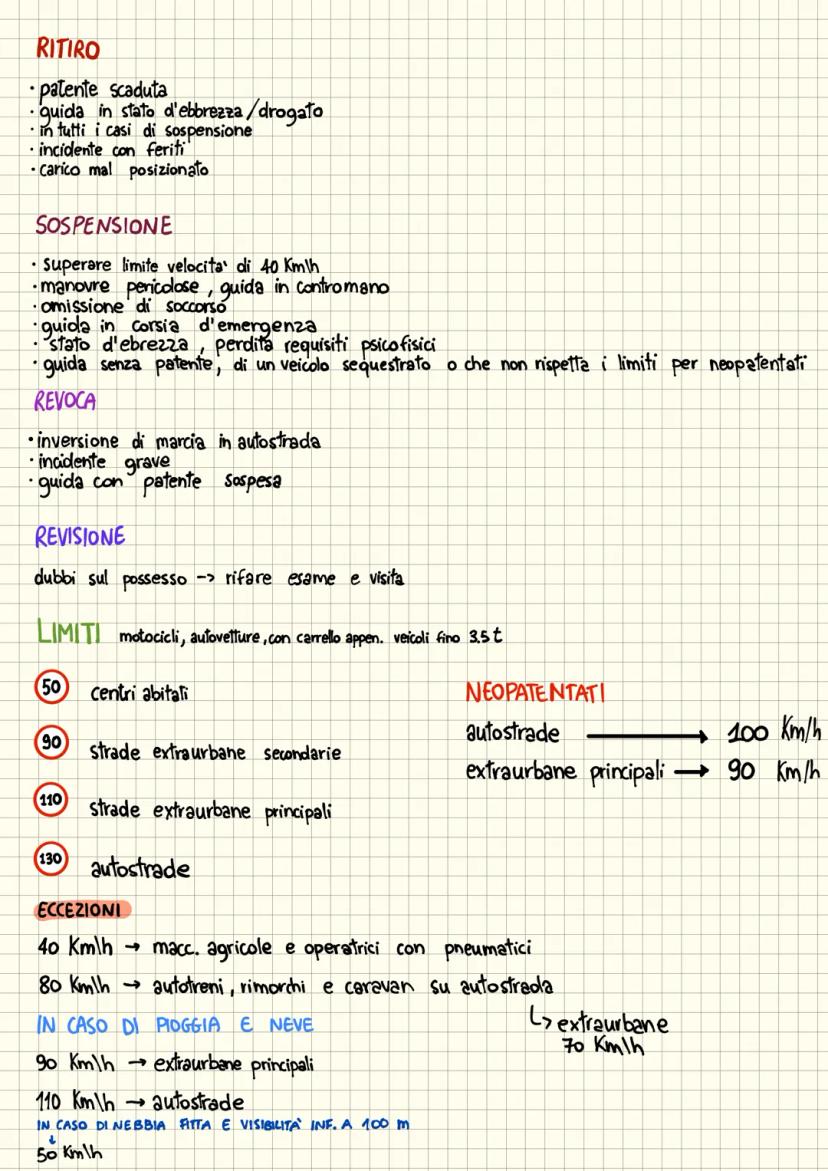 RITIRO
· patente scaduta
· guida in stato d'ebbrezza/drogato
· in tutti i casi di sospensione
· incidente con feriti
· carico mal posizionato
SOSPENSIONE
· superare limite velocita' di 40 Km\h
· manovre pericolose, guida in contromano
· omissione di soccorso
· guida in corsia d'emergenza
· stato d'ebrezza, perdita requisiti psicofisici
· guida senza patente, di un veicolo sequestrato o che non rispetta i limiti per neopatentati
REVOCA
· inversione di marcia in autostrada
· incidente grave
· guida con patente sospesa
REVISIONE
dubbi sul possesso -> rifare esame e visita
LIMITI motocicli, autovetture, con carrello appen. veicoli fino 3.5 t
50 centri abitati
90 strade extraurbane secondarie
110 strade extraurbane principali
130 autostrade
NEOPATENTATI
autostrade → 100 Km/h
extraurbane principali → 90 Km/h
ECCEZIONI
40 Km\h → macc. agricole e operatrici con pneumatici
80 Km\h → autotreni, rimorchi e caravan su autostrada
↳ extraurbane
70 Km\h
IN CASO DI PIOGGIA E NEVE
90 Km\h → extraurbane principali
110 Km\h → autostrade
IN CASO DI NEBBIA FITTA E VISIBILITA' INF. A 100 m
↓
50 Km\h